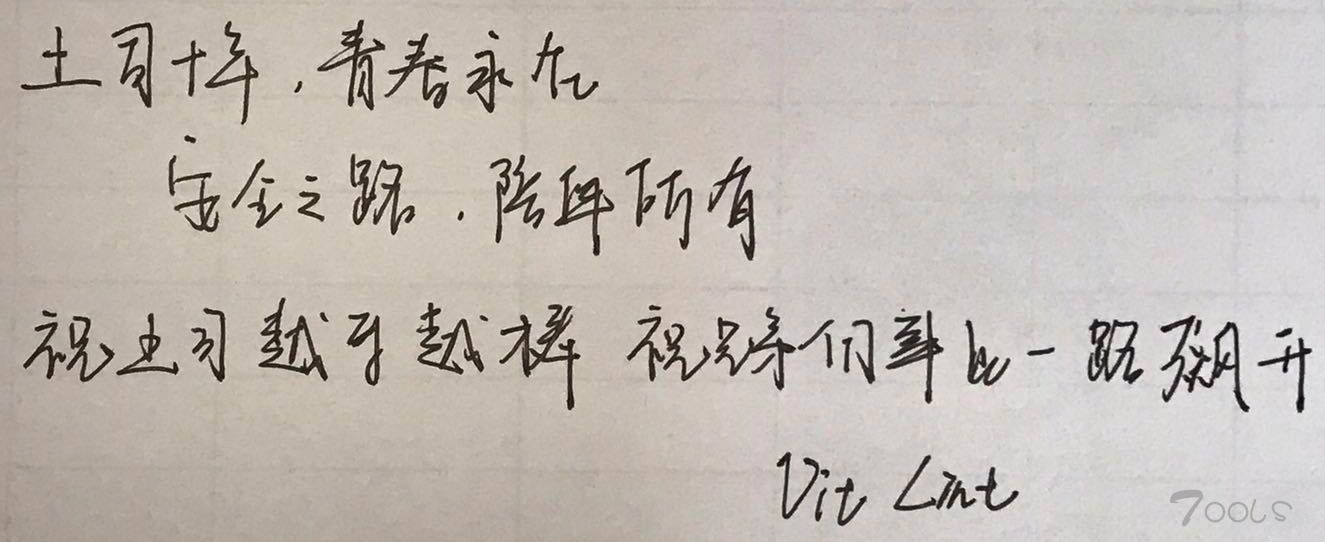 土司十年，青春永在
安全之路，陪伴所有
祝土司越来越棒 祝兄弟们薪比一路飙升
Vit Lint
7OOLS